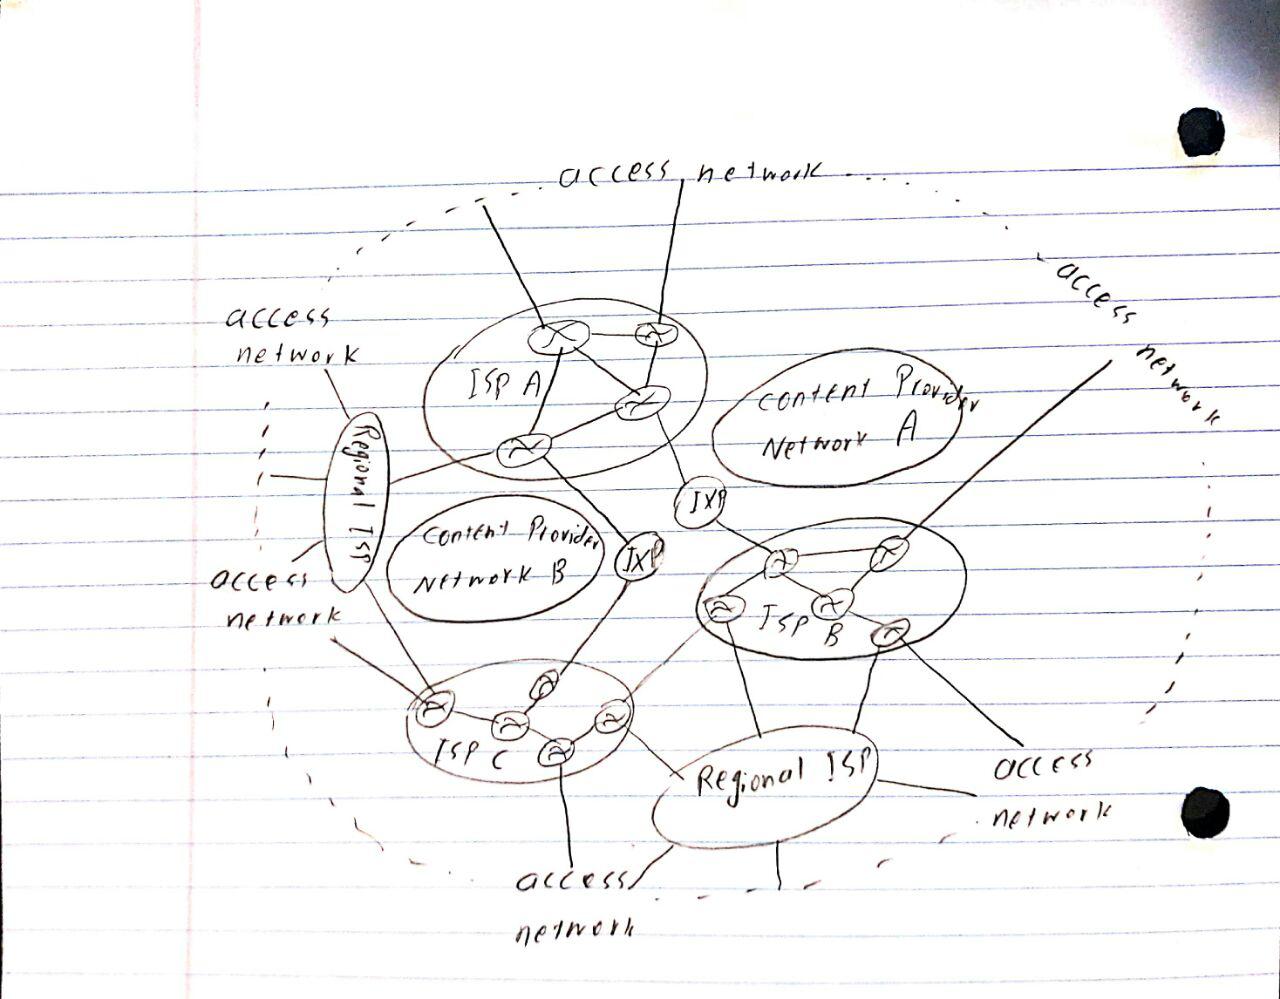 access network
access
network
access
network
ISP A
Content Provider
Network A
Regional ISP
IXP
Content Provider
Network B
IXP
access
network
ISP
B
ISP C
Regional ISP
access
network
access
network